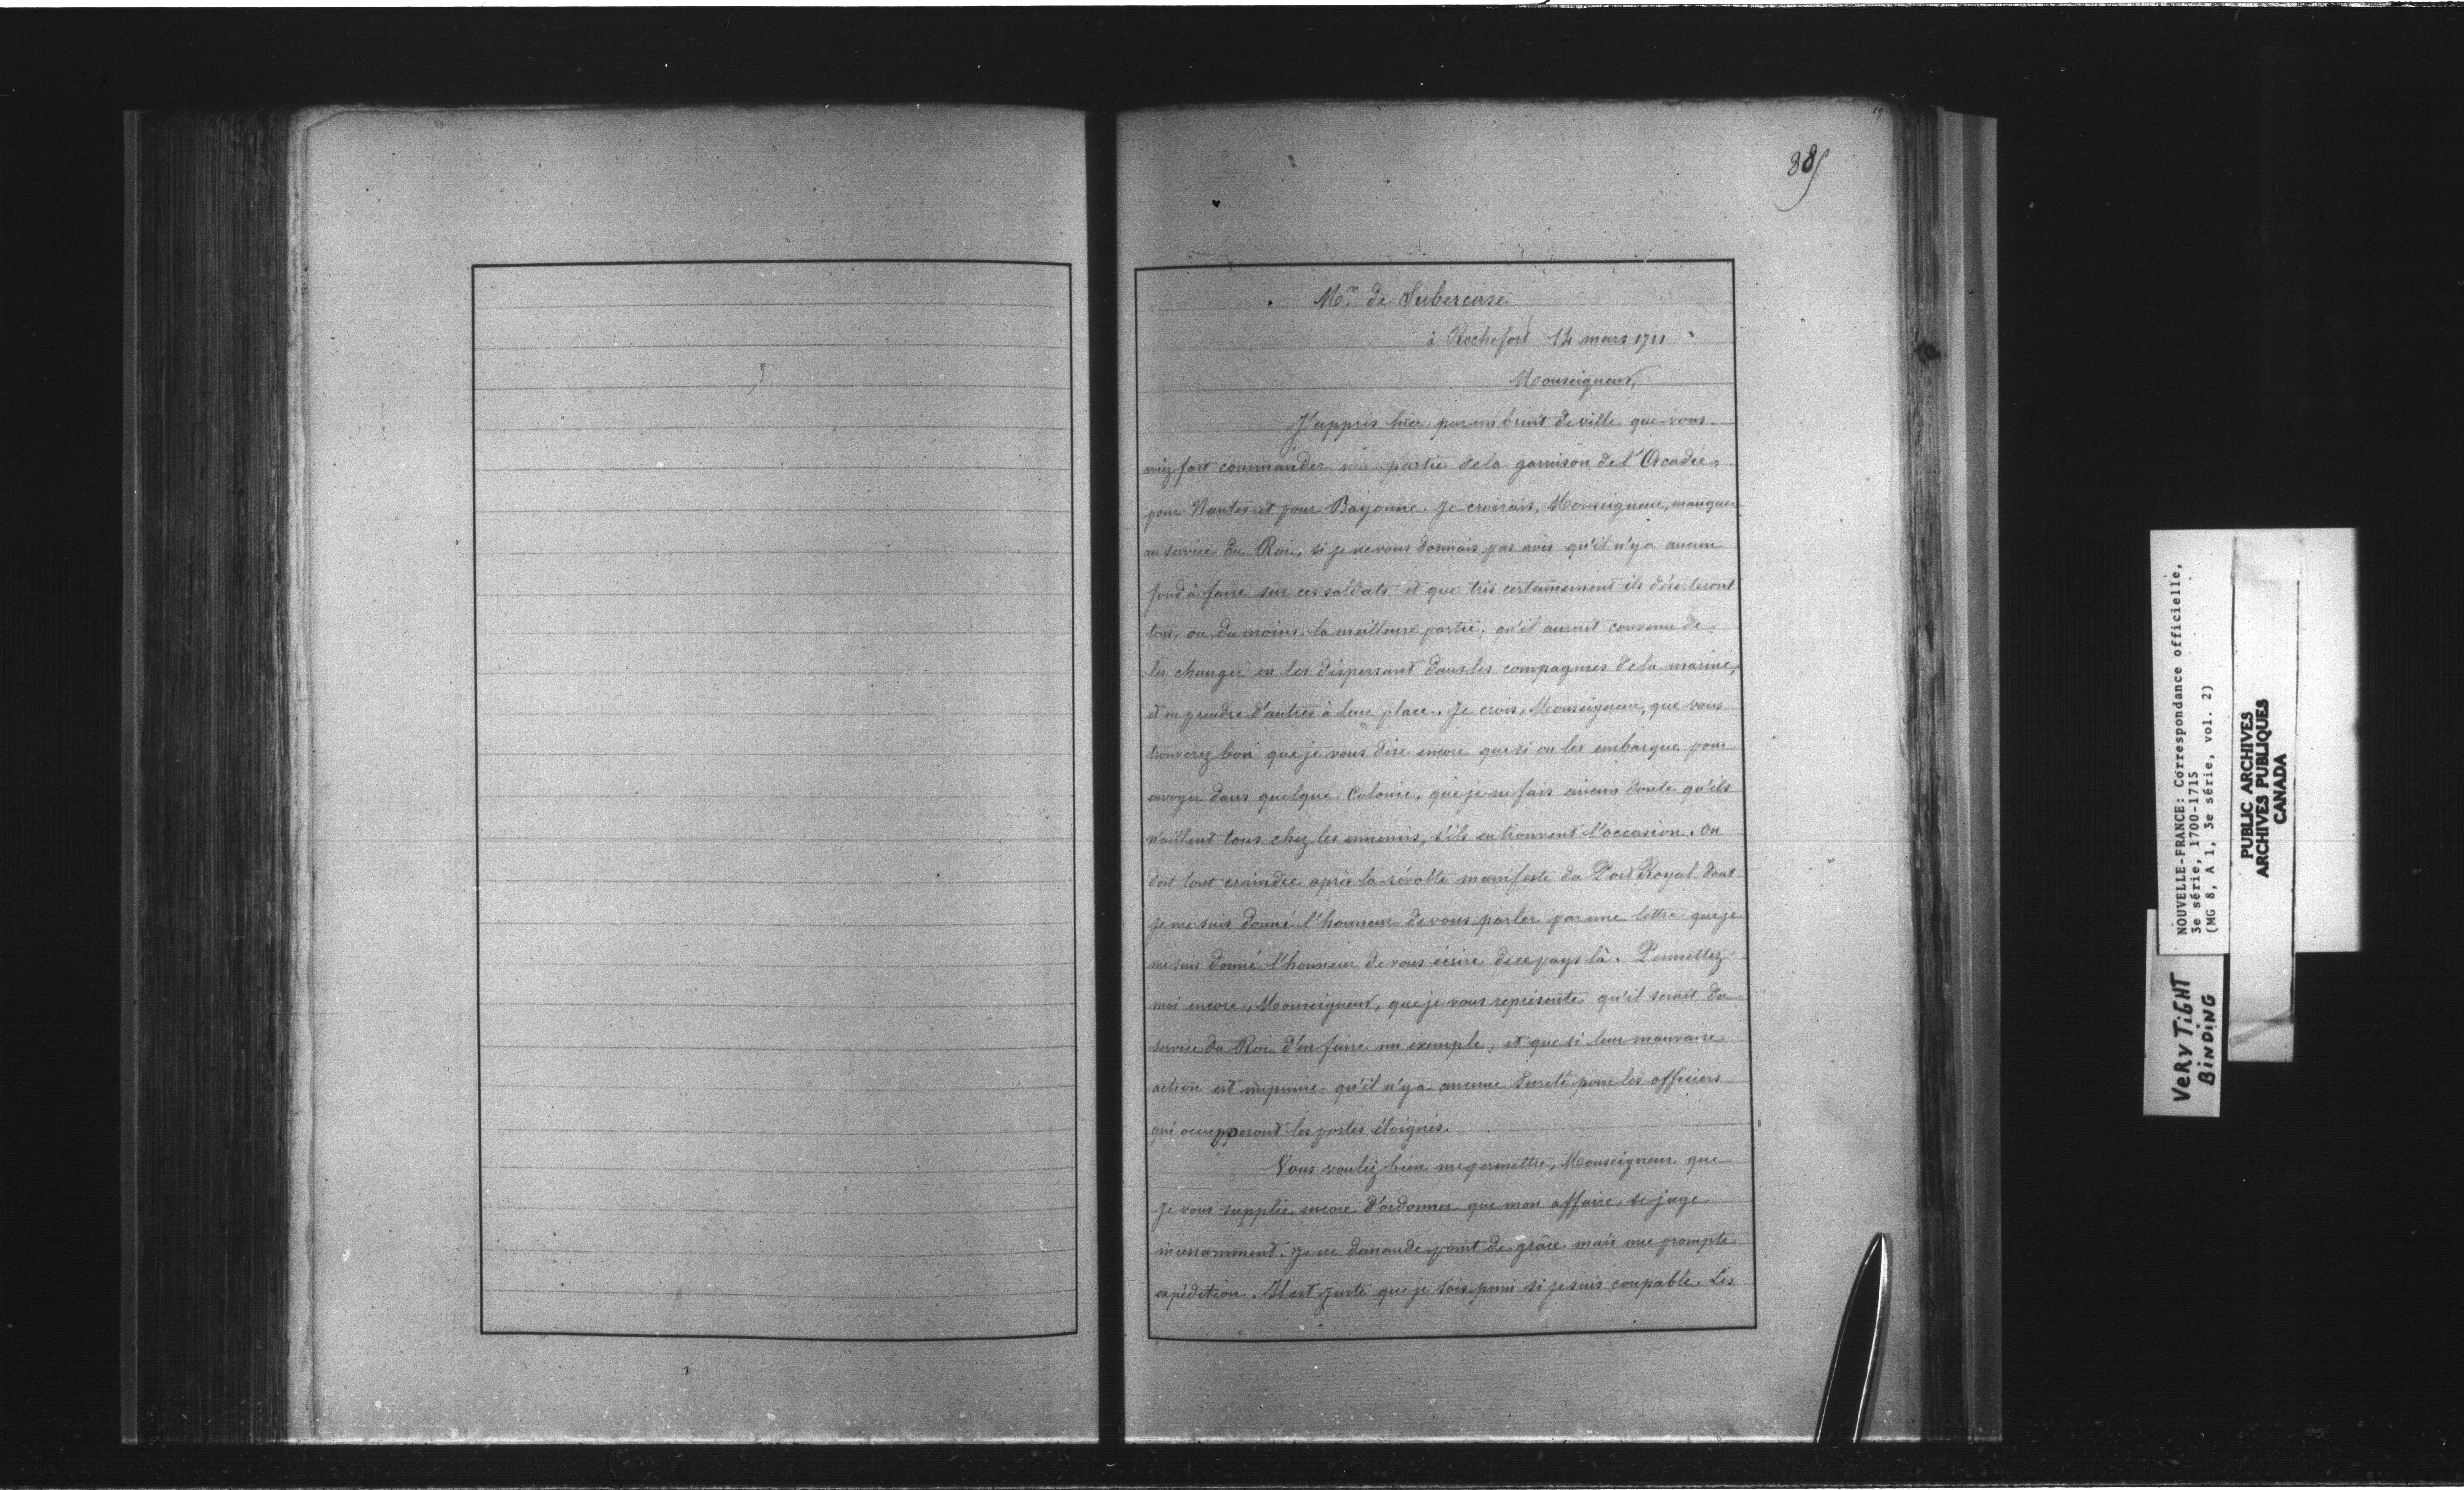 19
885
Mr. de Subercase
à Rochefort 14 mars 1711
Monseigneur,
J'appris hier, par un bruit de ville que vous
aviez fait commander une partie de la garnison de l'Acadie,
pour Nantes et pour Bayonne. Je croirais, Monseigneur, manquer
au service du Roi, si je ne vous donnais pas avis qu'il n'y a aucun
fond à faire sur ces soldats et que très certainement ils déserteront
tous, ou du moins, la meilleure partie; qu'il aurait convenu de
les changer en les dispersant dans les compagnies de la marine,
et en prendre d'autres à leur place. Je crois, Monseigneur, que vous
trouverez bon que je vous dise encore que si on les embarque pour
envoyer dans quelque Colonie, que je ne fais aucun doute qu'ils
n'aillent tous chez les ennemis, s'ils en trouvent l'occasion. On
doit tout craindre après la révolte manifeste du Port Royal dont
je me suis donné l'honneur de vous parler par une lettre que je
me suis donné l'honneur de vous écrire de ce pays là. Permettez
moi encore, Monseigneur, que je vous représente qu'il serait du
service du Roi d'en faire un exemple, et que si leur mauvaise
action est impunie qu'il n'y a aucune sureté pour les officiers
qui occupperont les postes éloignés.
Vous voulez bien me permettre, Monseigneur que
je vous supplie encore d'ordonner que mon affaire se juge
incessamment. Je ne demande point de grâce mais une prompte
expédition. Il est juste que je sois puni si je suis coupable. Les
NOUVELLE-FRANCE: Correspondance officielle,
3e série, 1700-1715
(MG 8, A 1, 3e série, vol. 2)
PUBLIC ARCHIVES
ARCHIVES PUBLIQUES
CANADA
VERY TIGHT
BINDING